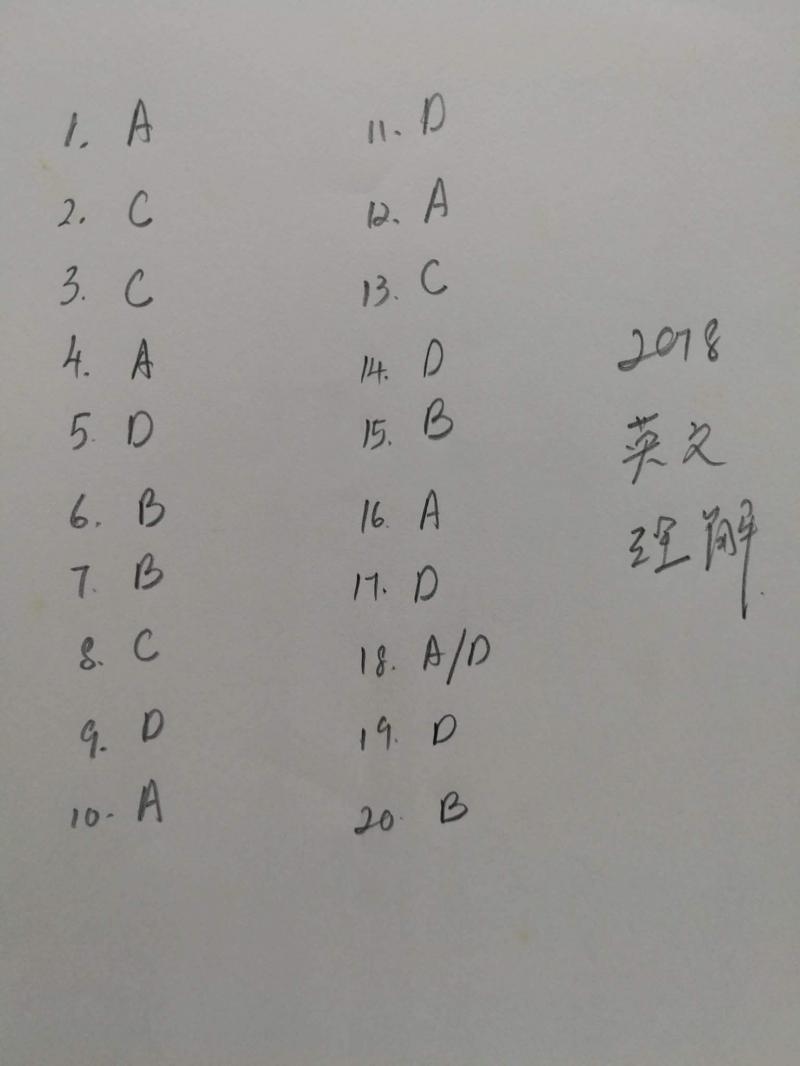 1. A
2. C
3. C
4. A
5. D
6. B
7. B
8. C
9. D
10. A
11. D
12. A
13. C
14. D
15. B
16. A
17. D
18. A/D
19. D
20. B
2018
英文
理解